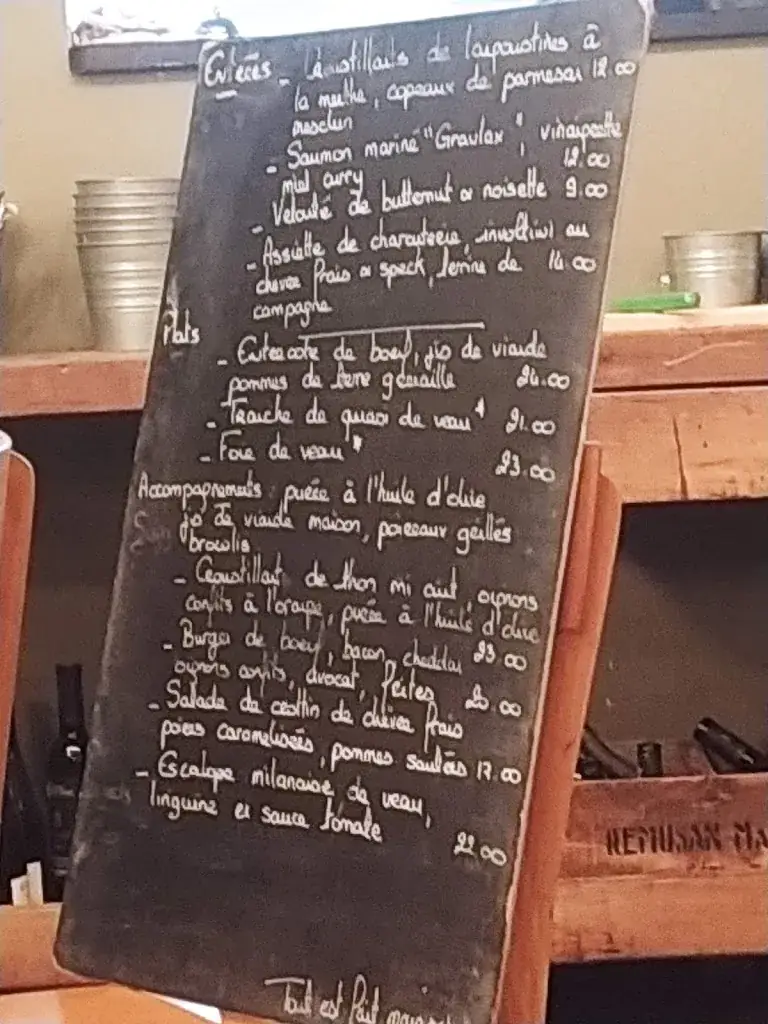 Entrées - Croustillants de langoustines à
la menthe, copeaux de parmesan 12.00
mesclun
- Saumon mariné "Gravlax", vinaigrette
miel curry 12.00
- Velouté de butternut et noisette 9.00
- Assiette de charcuterie, involtini au
chèvre frais et speck, terrine de 14.00
campagne
Plats
- Entrecôte de boeuf, jus de viande
pommes de terre grenaille 24.00
- Tranche de quasi de veau * 21.00
- Foie de veau * 23.00
Accompagnements : purée à l'huile d'olive
jus de viande maison, poireaux grillés
brocolis
- Croustillant de thon mi cuit, oignons
confits à l'orange, purée à l'huile d'olive
- Burger de boeuf, bacon, cheddar 23.00
oignons confits, avocat, frites 20.00
- Salade de crottin de chèvre frais
poires caramelisées, pommes sautées 17.00
- Escalope milanaise de veau,
linguine et sauce tomate
22.00
Tout est fait maison
REMUSAN MA